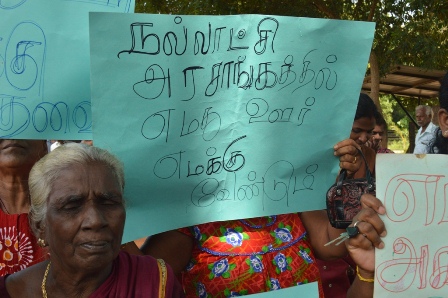 நல்லாட்சி
அரசாங்கத்தில்
எமது ஊர்
எமக்கு
வேண்டும்